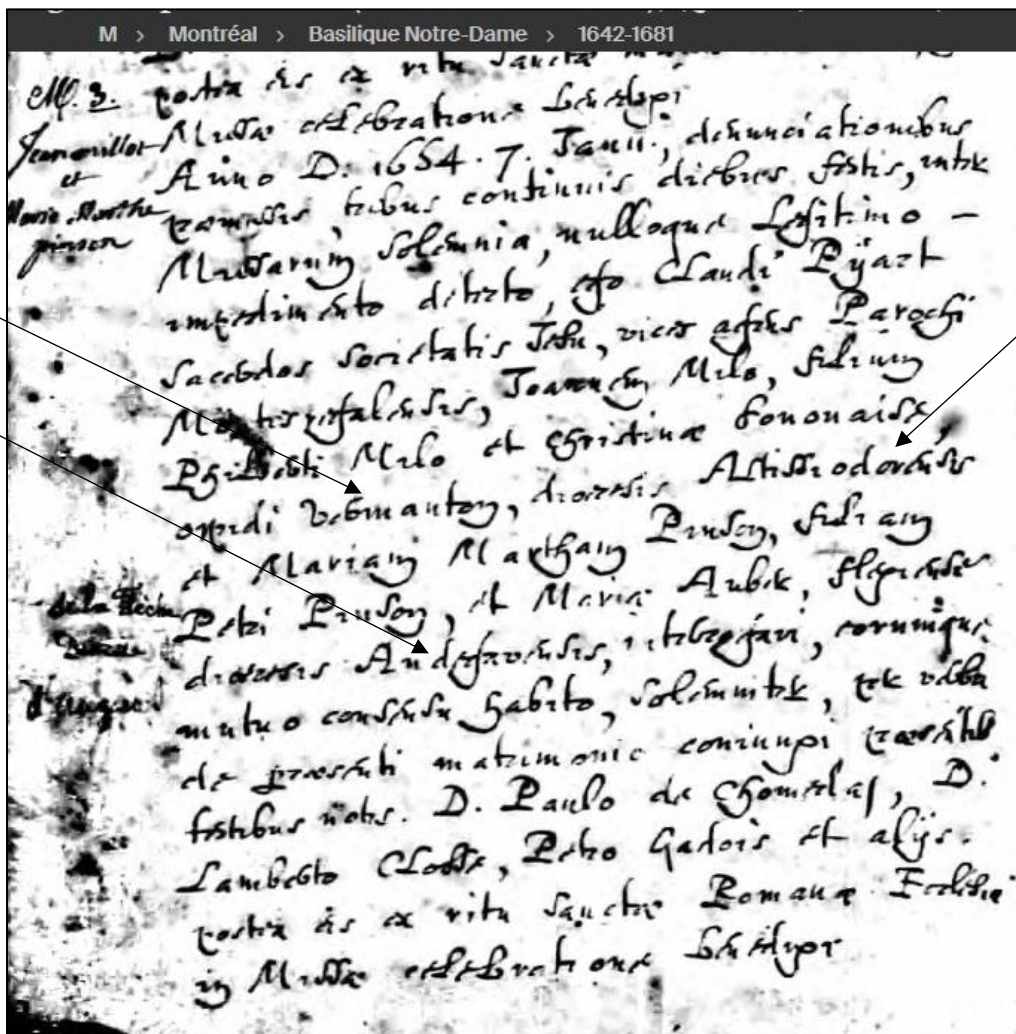 M > Montréal > Basilique Notre-Dame > 1642-1681
postea eis ex ritu Sanctæ
M. 3.
Jean millot
et
Marie Marthe
pinson
Missæ celebratione benedixi
Anno D. 1654. 7. Janii., denunciationibus
praemissis, tribus continuis diebus festis, inter
Missarum Solemnia, nulloque Legitimo -
impedimento detecto, ego Claudi' Pÿart
Sacerdos Societatis Jesu, vices agens Parochi
Montisregalensis, Joannem Milo, filium
Philiberti Milo et Christinæ Fononaise,
opidi Vermanton, diœcesis Altissiodorensis
et Mariam Martham Pinson, filiam
Petri Pinson, et Mariæ Auber,
de la flèche
d'Angers
diœcesis Andegavensis, interrogavi, eorumque
mutuo consensu habito, solemniter, per verba
de præsenti matrimonio coniunxi præsentib
testibus notis. D. Paulo de Chomedaj, D.
Lamberto Closse, Petro Gadois et alÿs.
postea eis ex ritu Sanctæ Romanæ Ecclesiæ
in Missæ celebratione benedixi